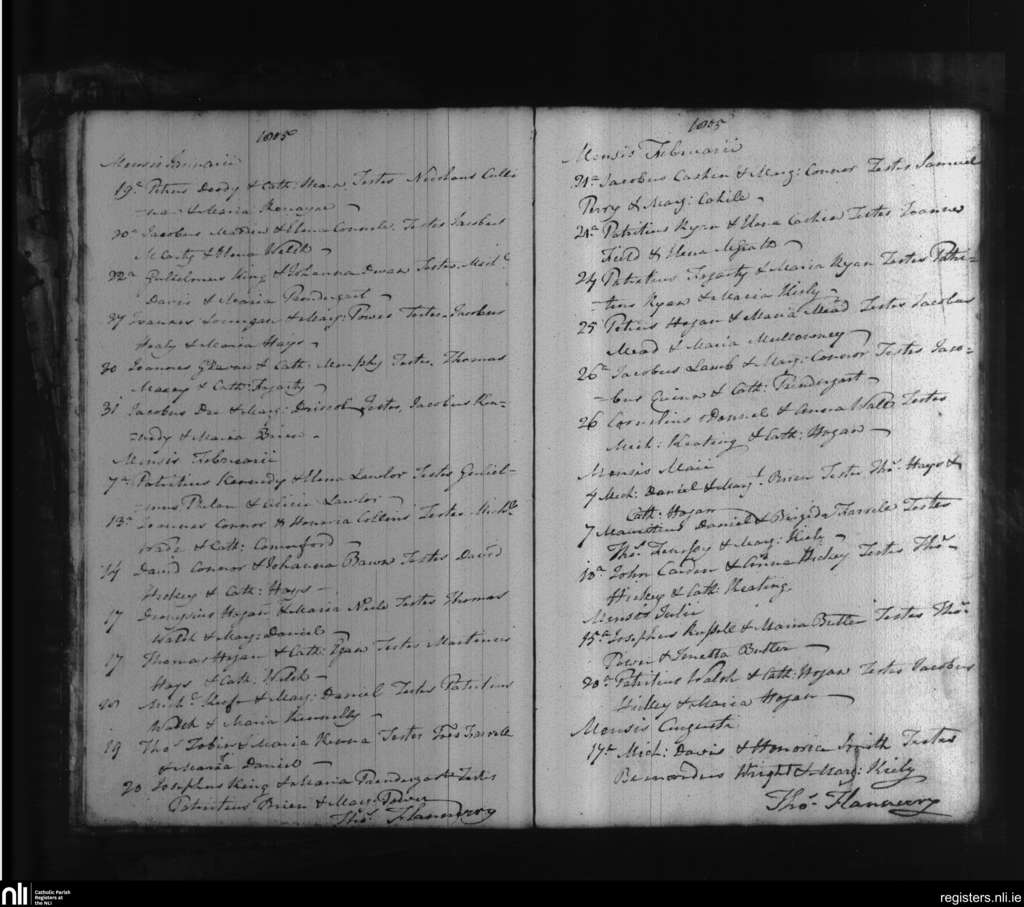 1805
Mensis Januarii
19a Petrus Doody & Cath: Meara Testes Nicolaus Culli
& Maria Ronayne
20a Jacobus & Elena Testes Jacobus
McCarty & Elena Welsh
22a Gulielmus King & Johanna Dwan Testes Michl
Davis & Maria Prendergast
27 Joannes & Marg: Power Testes Jacobus
Healy & Maria Hays
30 Joannes & Cath: Murphy Testes Thomas
Macey & Cath: Fogarty
31 Jacobus Dee & Marg: Driscol Testes Jacobus Ken-
=nedy & Maria Brien
Mensis Februarii
7a Patritius Kennedy & Elena Lawlor Testes Guliel-
=mus Phelan & Alicia Lawlor
13a Joannes Connor & Honoria Collins Testes Michl
Wade & Cath: Commerford
14 David Connor & Johanna Bawn Testes David
Hickey & Cath: Hays
17 Dionysius Hogan & Maria Neile Testes Thomas
Walsh & Mary: Daniel
17 Thomas Hogan & Cath: Ryan Testes Martinus
Hays & Cath: Welsh
Michl: Keefe & Mary: Daniel Testes Patritius
Walsh & Maria Kennelly
19 Thos Tobin & Maria Kenna Testes Farrele
& Maria Daniel
20 Josephus King & Maria Prendergast Testes
Patritius Brien & Mary: Power
Thos. Flannery
1805
Mensis Februarii
21a Jacobus Cashin & Marg: Connor Testes Samuel
Perry & Mary: Cahile
21a Patritius Ryan & Elena Cashin Testes Joannes
Field & Elena McGrath
24 Patritius Fogarty & Maria Ryan Testes Patri=
=tius Ryan & Maria Kiely
25 Petrus Hogan & Maria Mead Testes Jacobus
Mead & Maria Mullowney
26a Jacobus Lamb & Mary: Connor Testes Jaco=
=bus Quinn & Cath: Prendergast
26 Cornelius oDonnel & Anna Wall Testes
Mich: Keating & Cath: Hogan
Mensis Maii
7 Mich: Daniel & Mary: Brien Testes Thos. Hays &
Cath: Hogan
7 Mauritius Daniel & Brigida Farrele Testes
Thos. & Mary: Kiely
18a John Carden & Anna Hickey Testes Thos.
Hickey & Cath: Keating.
Mensis Julii
15a Josephus Russele & Maria Butler Testes Thos.
Power & Butler
28a Patritius Walsh & Cath: Hogan Testes Jacobus
Hickey & Maria Hogan
Mensis Augusti
17a Mich: Davis & Honoria Smith Testes
Bernardus Wright & Mary: Kiely
Thos. Flannery
nli
Catholic Parish
Registers at
the NLI
registers.nli.ie